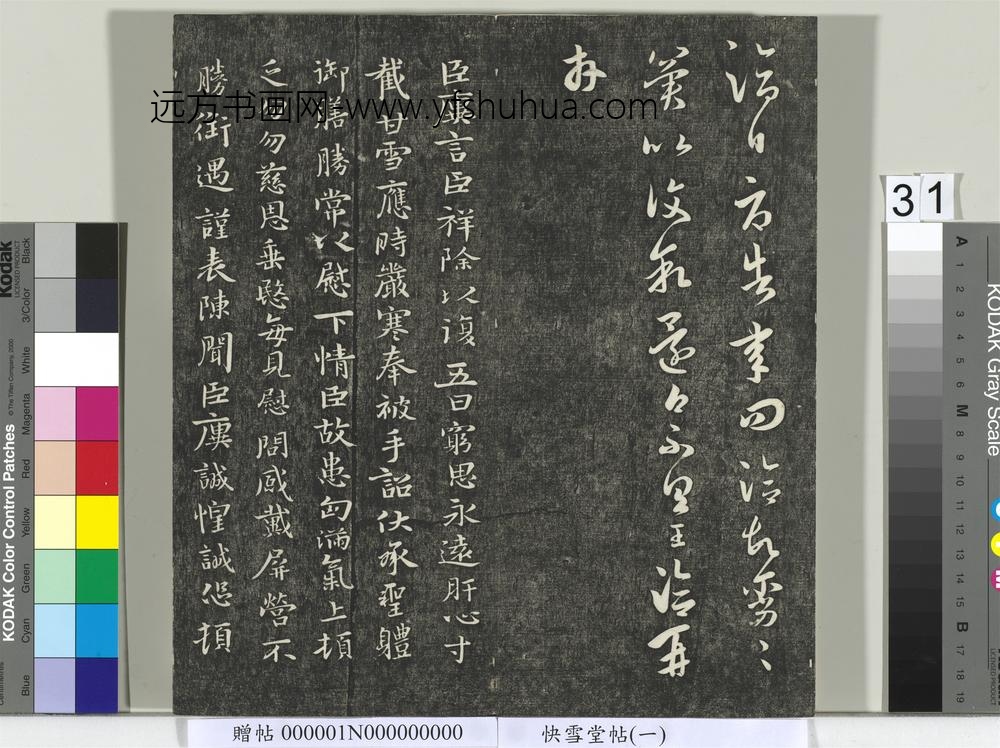 洽白方告承問洽故劣劣
冀以復不具王洽再
拜
臣廙言臣祥除以復五日窮思永遠肝心寸
截甘雪應時嚴寒奉被手詔伏承聖體
御膳勝常以慰下情臣故患匈滿氣上頓
乏匆匆慈恩垂愍每見慰問感戴屏營不
勝銜遇謹表陳聞臣廙誠惶誠恐頓
远方书画网-www.yfshuhua.com
31
贈帖 000001N000000000
快雪堂帖(一)
KODAK Color Control Patches
Kodak
LICENSED PRODUCT
© The Tiffen Company, 2000
Black
3/Color
White
Magenta
Red
Yellow
Green
Cyan
Blue
KODAK Gray Scale
A 1 2 3 4 5 6 M 8 9 10 11 12 13 14 15 B 17 18 19